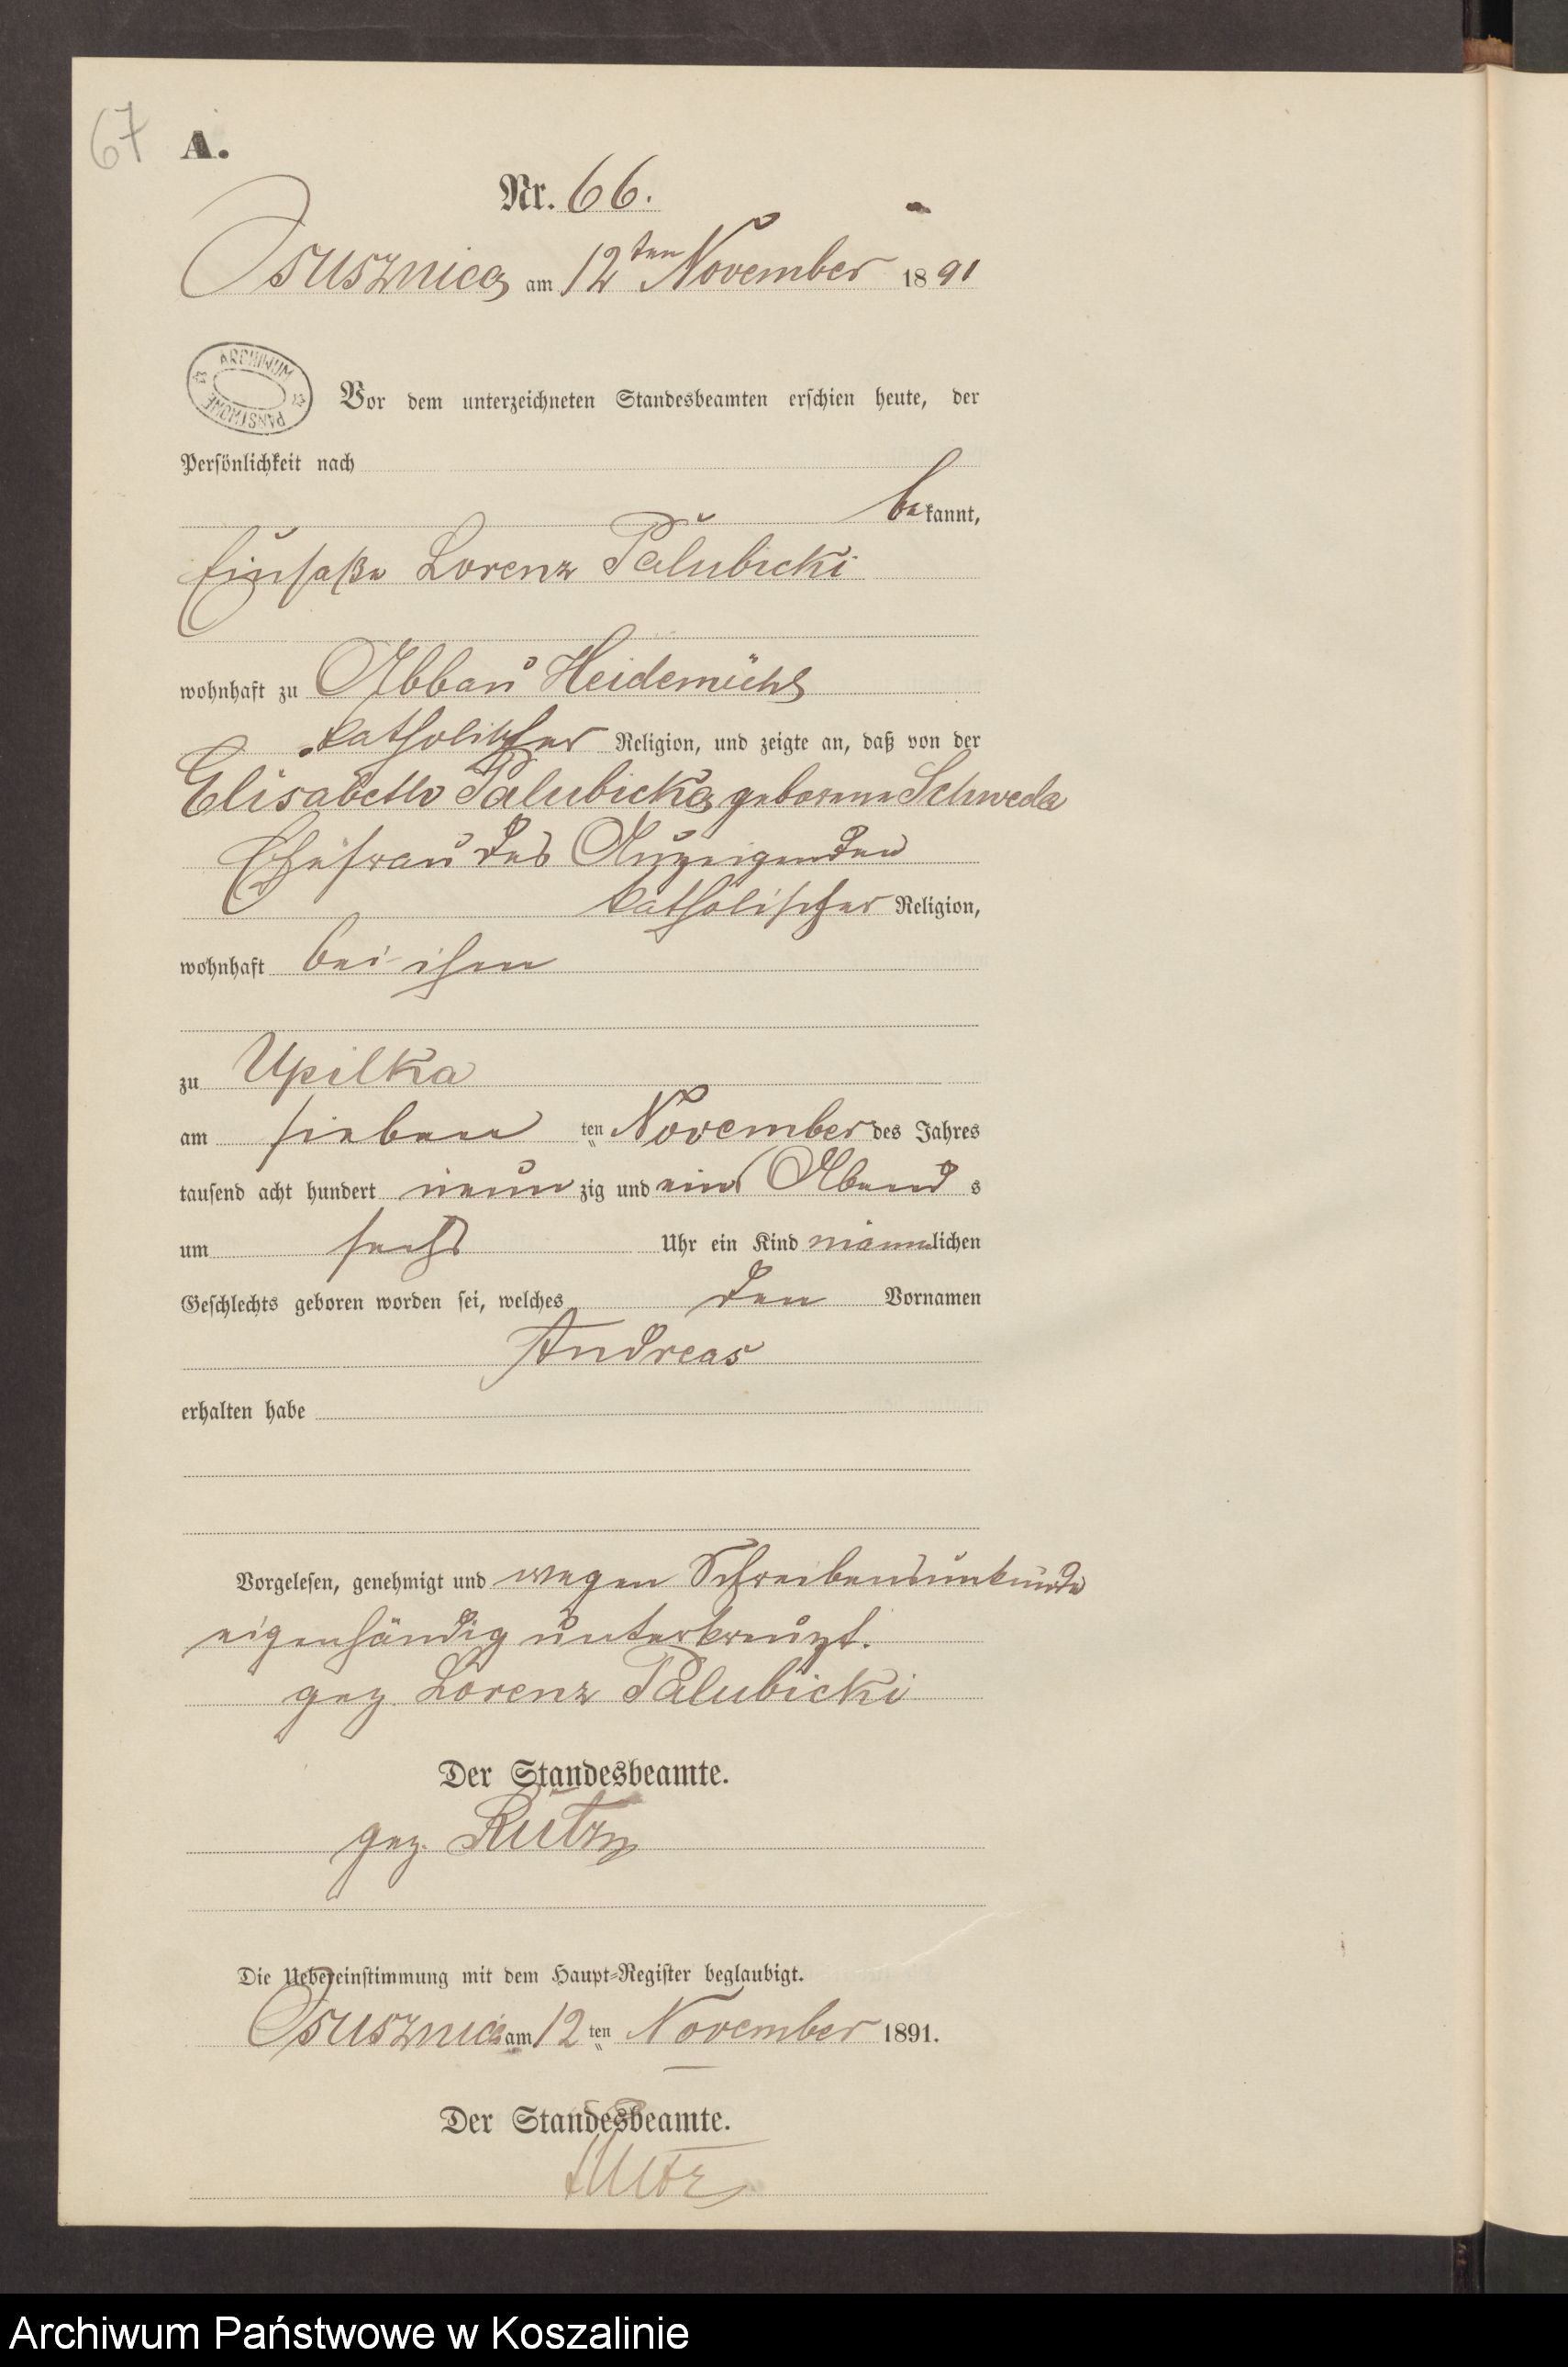 67
A.
Nr. 66.
Osusznica am 12ten November 1891
ARCHIWUM PAŃSTWOWE
Vor dem unterzeichneten Standesbeamten erschien heute, der
Persönlichkeit nach
bekannt,
Einsaße Lorenz Palubicki
wohnhaft zu Abbau Heidemühl
katholischer Religion, und zeigte an, daß von der
Elisabeth Palubicka geborene Schweda
Ehefrau des Anzeigenden
katholischer Religion,
wohnhaft bei ihm
zu Upilka
am sieben ten November des Jahres
tausend acht hundert neunzig und eins Abends
um sechs Uhr ein Kind männlichen
Geschlechts geboren worden sei, welches den Vornamen
Andreas
erhalten habe
Vorgelesen, genehmigt und wegen Schreibensunkunde
eigenhändig unterkreuzt.
gez. Lorenz Palubicki
Der Standesbeamte.
gez. Rutz
Die Uebereinstimmung mit dem Haupt-Register beglaubigt.
Osusznica am 12ten November 1891.
Der Standesbeamte.
Rutz
Archiwum Państwowe w Koszalinie